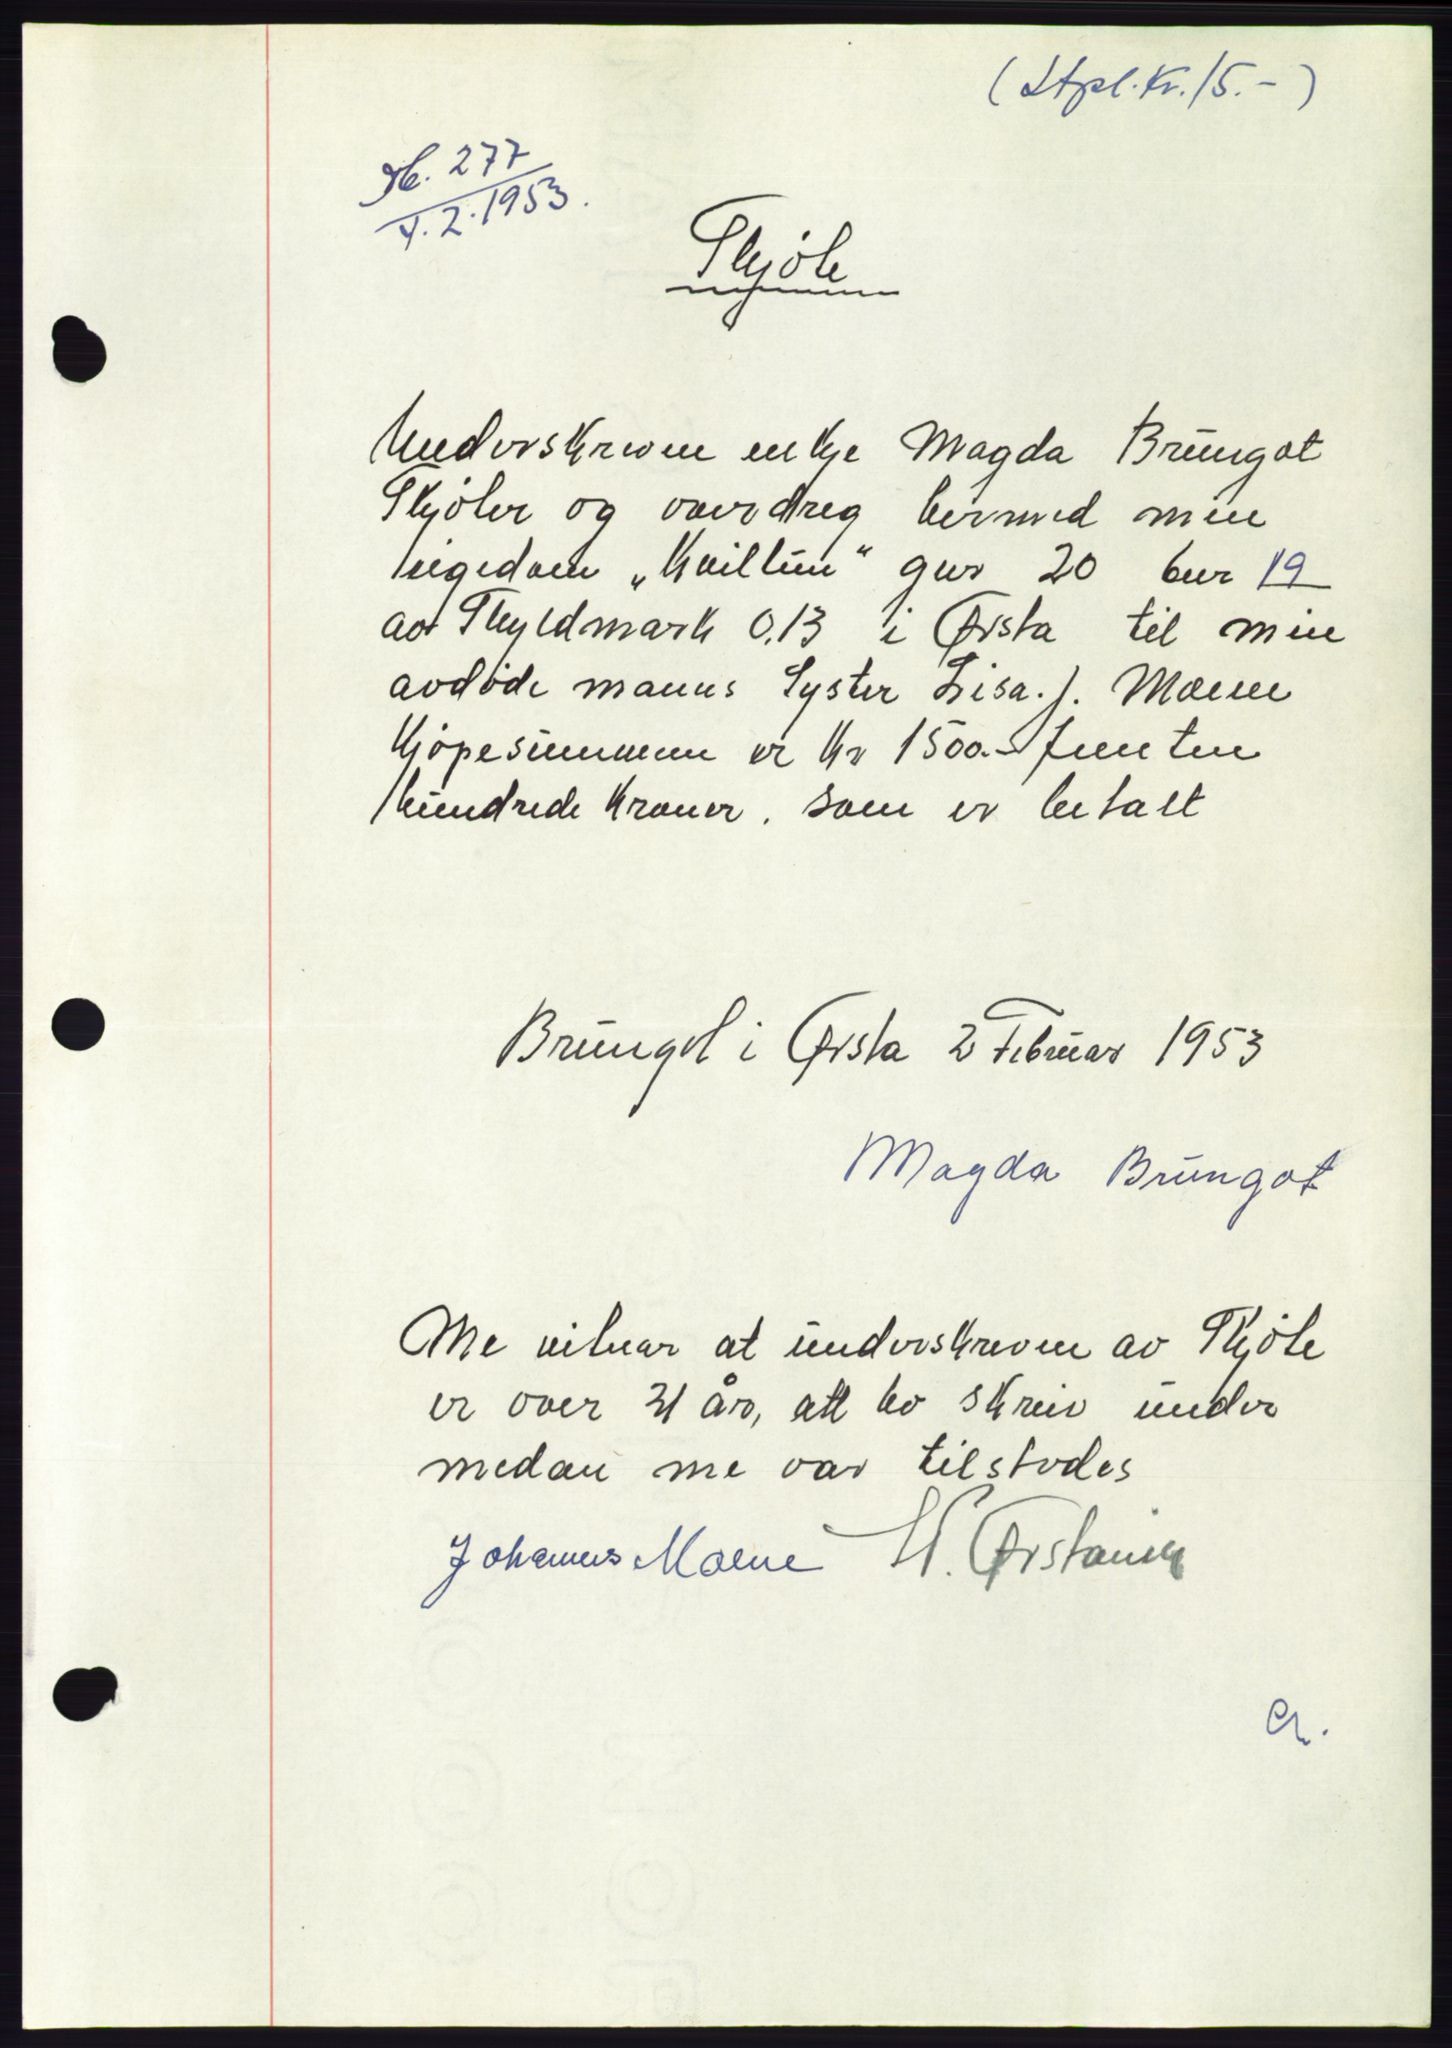 (Stpl. kr. 15.-)
Db. 277
4.2.1953.
Skjöte
Underskreven enkje Magda Brungot
Skjöter og overdreg hermed min
eigedom „Kviltun“ gnr 20 bnr 19
av Skyldmark 0,13 i Ørsta til min
avdöde manns Syster Lisa. J. Moene
Kjöpesummen er Kr 1500.- femten
hundrede Kroner. som er betalt
Brungot i Ørsta 2 Februar 1953
Magda Brungot
Me vitnar at underskreven av Skjöte
er over 21 år, att ho skreiv under
medan me var tilstodes
Johannes Moene H. Ørstavik